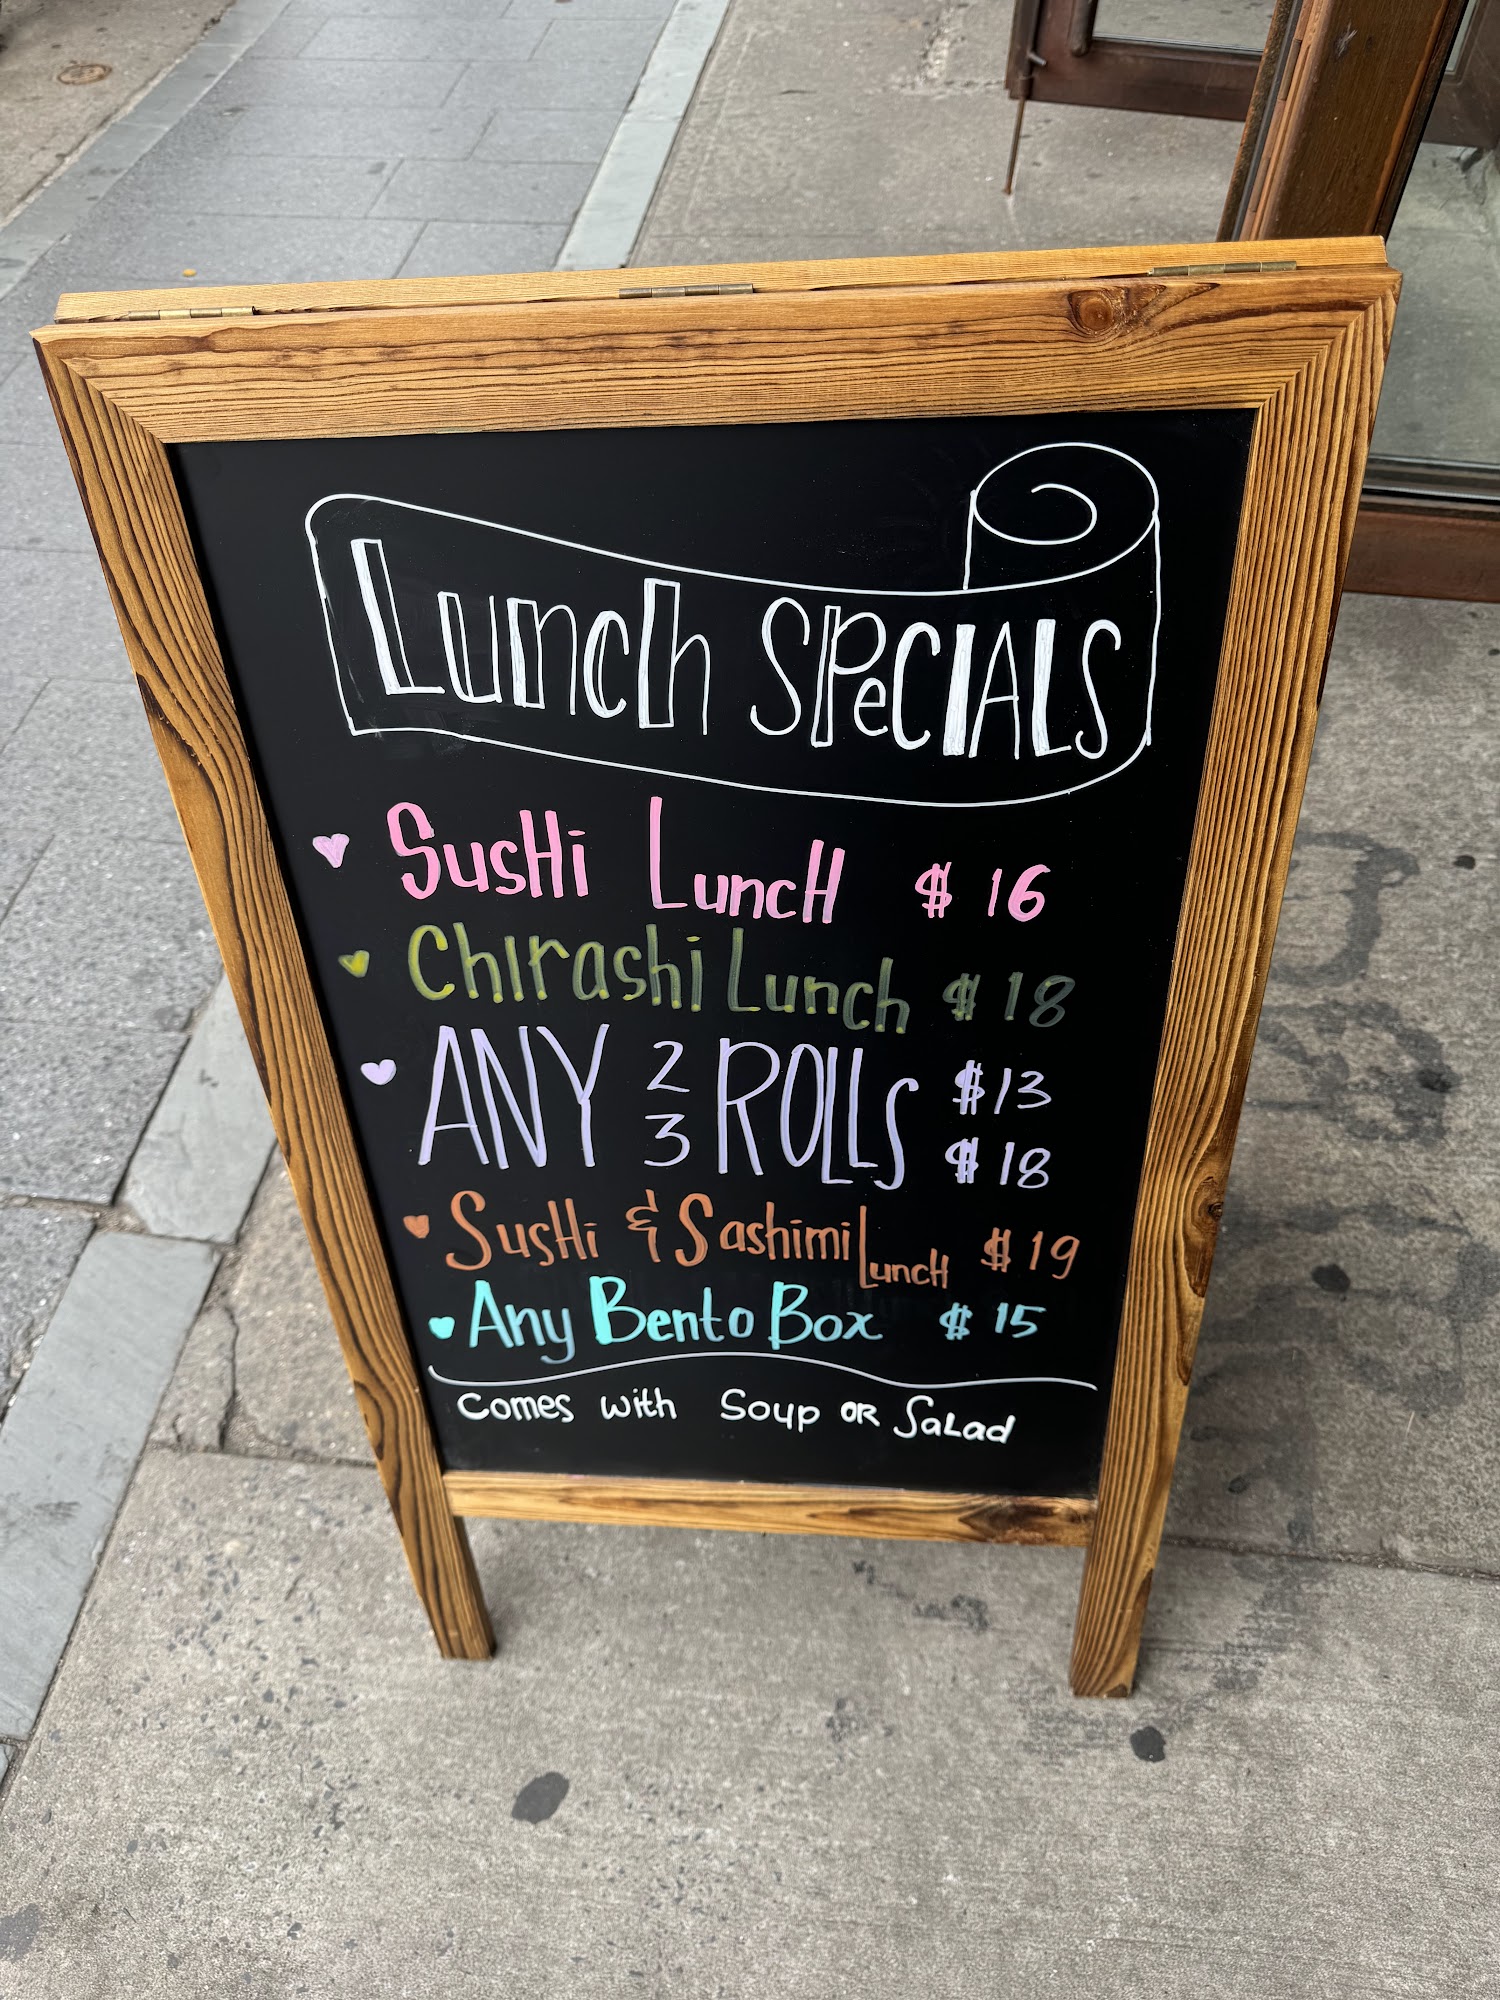 Lunch SPeCIALS
SusHi LuncH $ 16
Chirashi Lunch $ 18
ANY 2 ROLLS $13
3 $18
SusHi & Sashimi LuncH $ 19
Any Bento Box $ 15
Comes with Soup OR SaLad